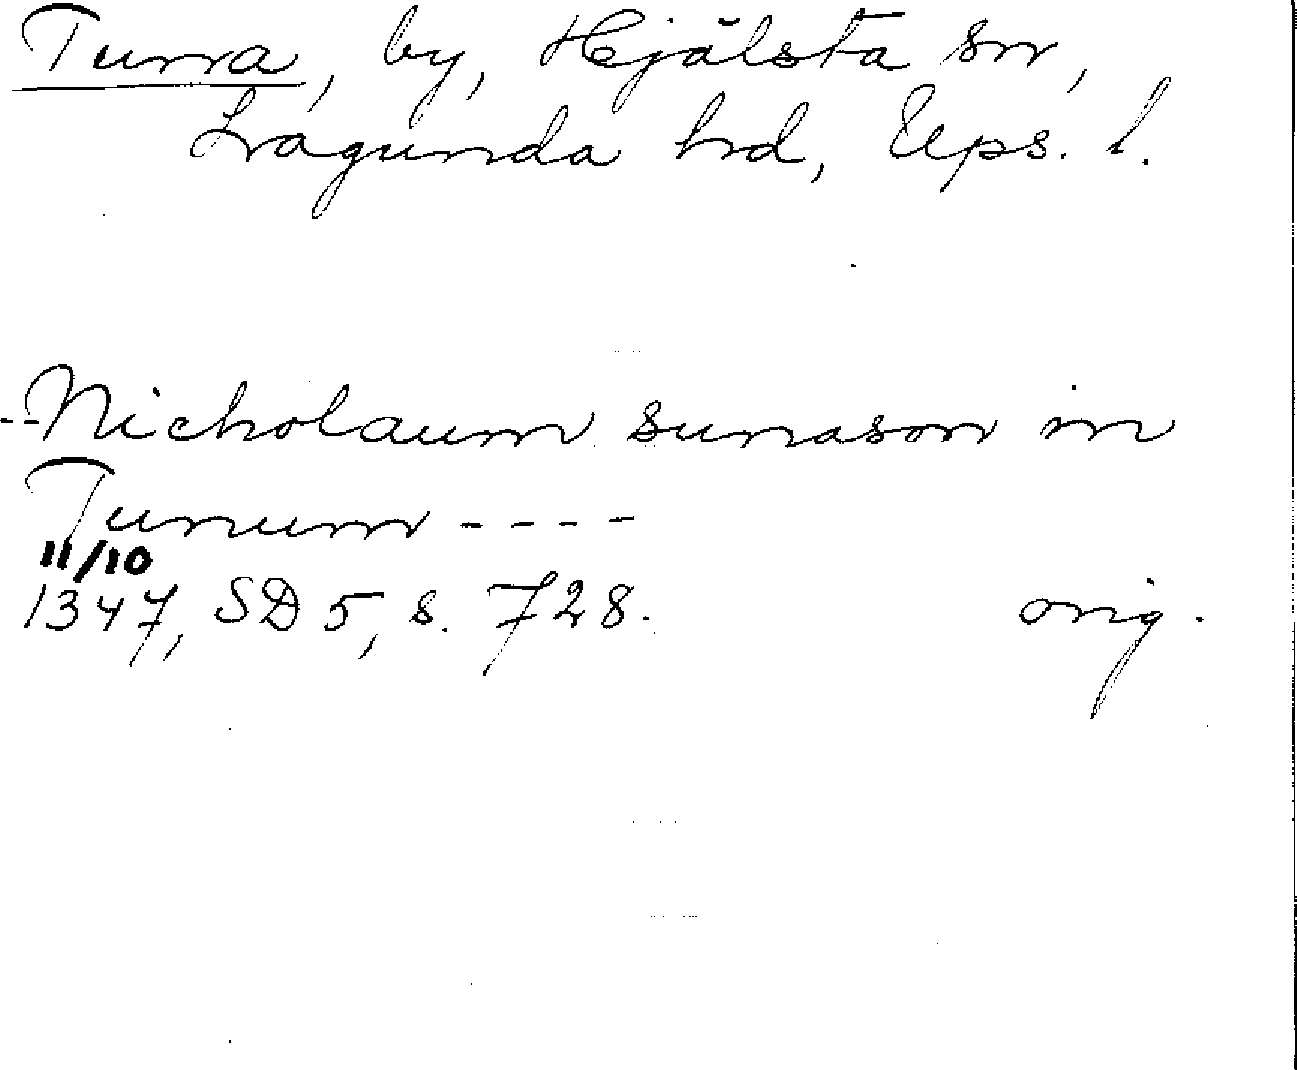 Tunna, by, Hjälsta sn,
Lagunda hd, Ups. l.
--Nicholaum sunason in
Tunum ----
11/10
1347, SD 5, s. 728. orig.